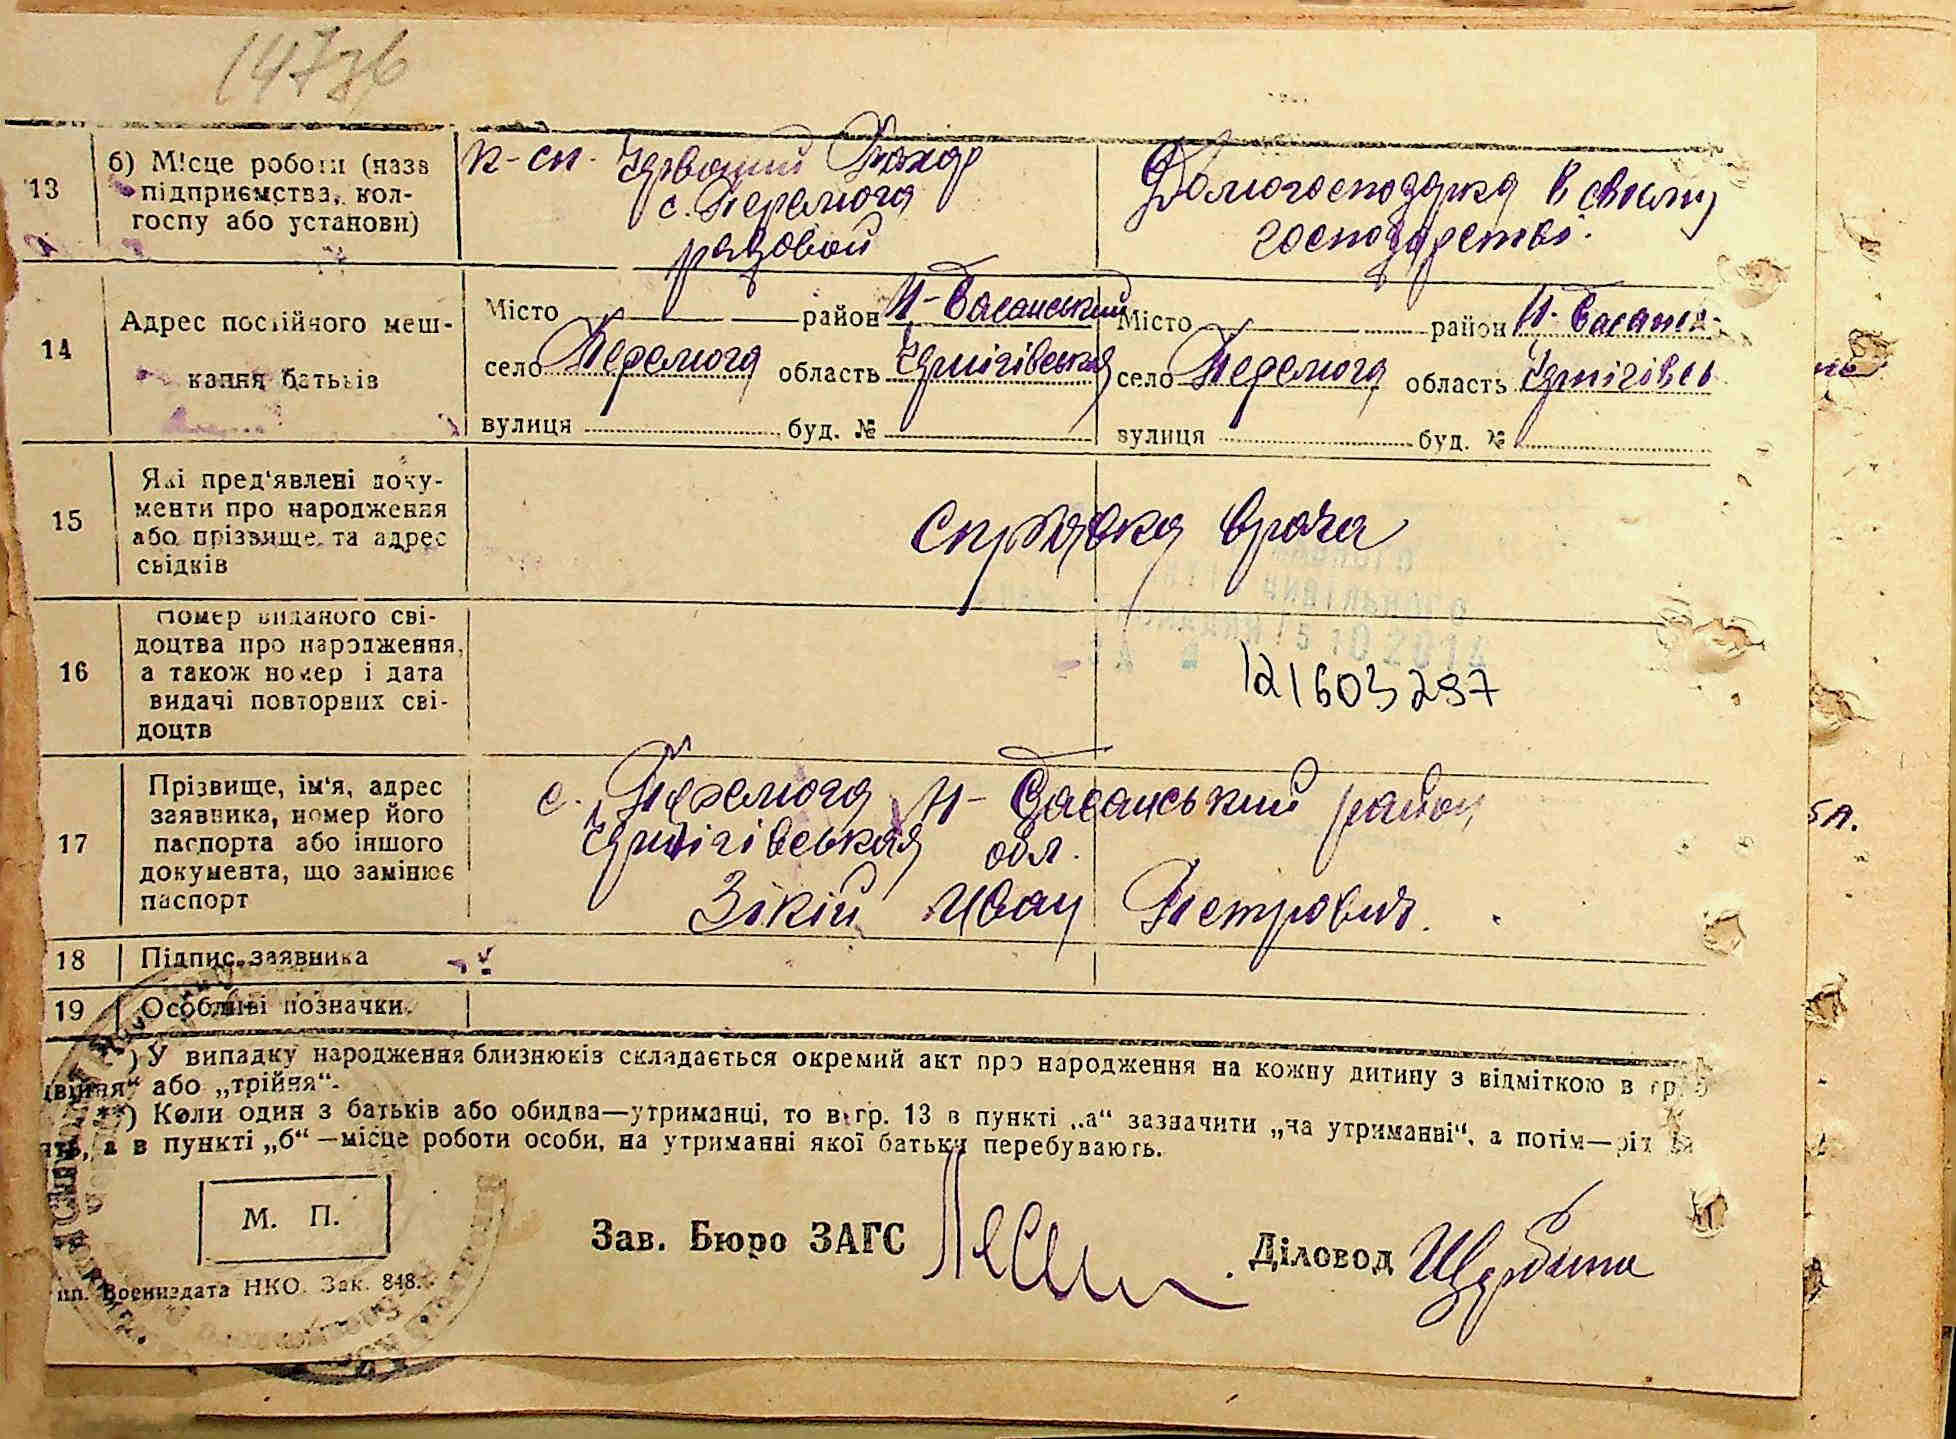 147зв
13
б) Місце роботи (назв
підприємства, кол-
госпу або установи)
к-сп. Червоний Пахар
с. Перемога
рядовой
Домогосподарка в своєму
господарстві.
14
Адрес постійного меш-
кання батьків
Місто район Н-Басанський
село Перемога область Чернігівська
вулиця буд. №
Місто район Н-Басансь
село Перемога область Чернігівсь
вулиця буд. №
15
Які пред'явлені доку-
менти про народження
або прізвище та адрес
свідків
Справка врача
16
Номер виданого сві-
доцтва про народження,
а також номер і дата
видачі повторних сві-
доцтв
15 10 2014
121603297
17
Прізвище, ім'я, адрес
заявника, номер його
паспорта або іншого
документа, що замінює
паспорт
с. Перемога Н-Басанський район
Чернігівськая обл.
Зікій Иван Петрович.
18 Підпис заявника
19 Особливі позначки
) У випадку народження близнюків складається окремий акт про народження на кожну дитину з відміткою в гр. 5
двійня“ або „трійня“.
**) Коли один з батьків або обидва—утриманці, то в гр. 13 в пункті „а“ зазначити „на утриманні“, а потім—
а в пункті „б“ —місце роботи особи, на утриманні якої батьки перебувають.
М. П.
Зав. Бюро ЗАГС
Діловод Щербина
Воениздата НКО. Зак. 848.